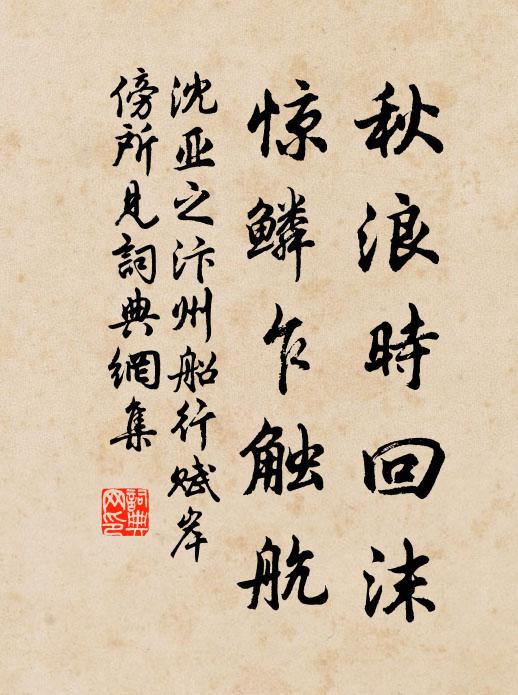 秋浪時回沫
惊鳞乍触航
沈亚之汴州船行赋岸
傍所見詞典網集
詞典網印